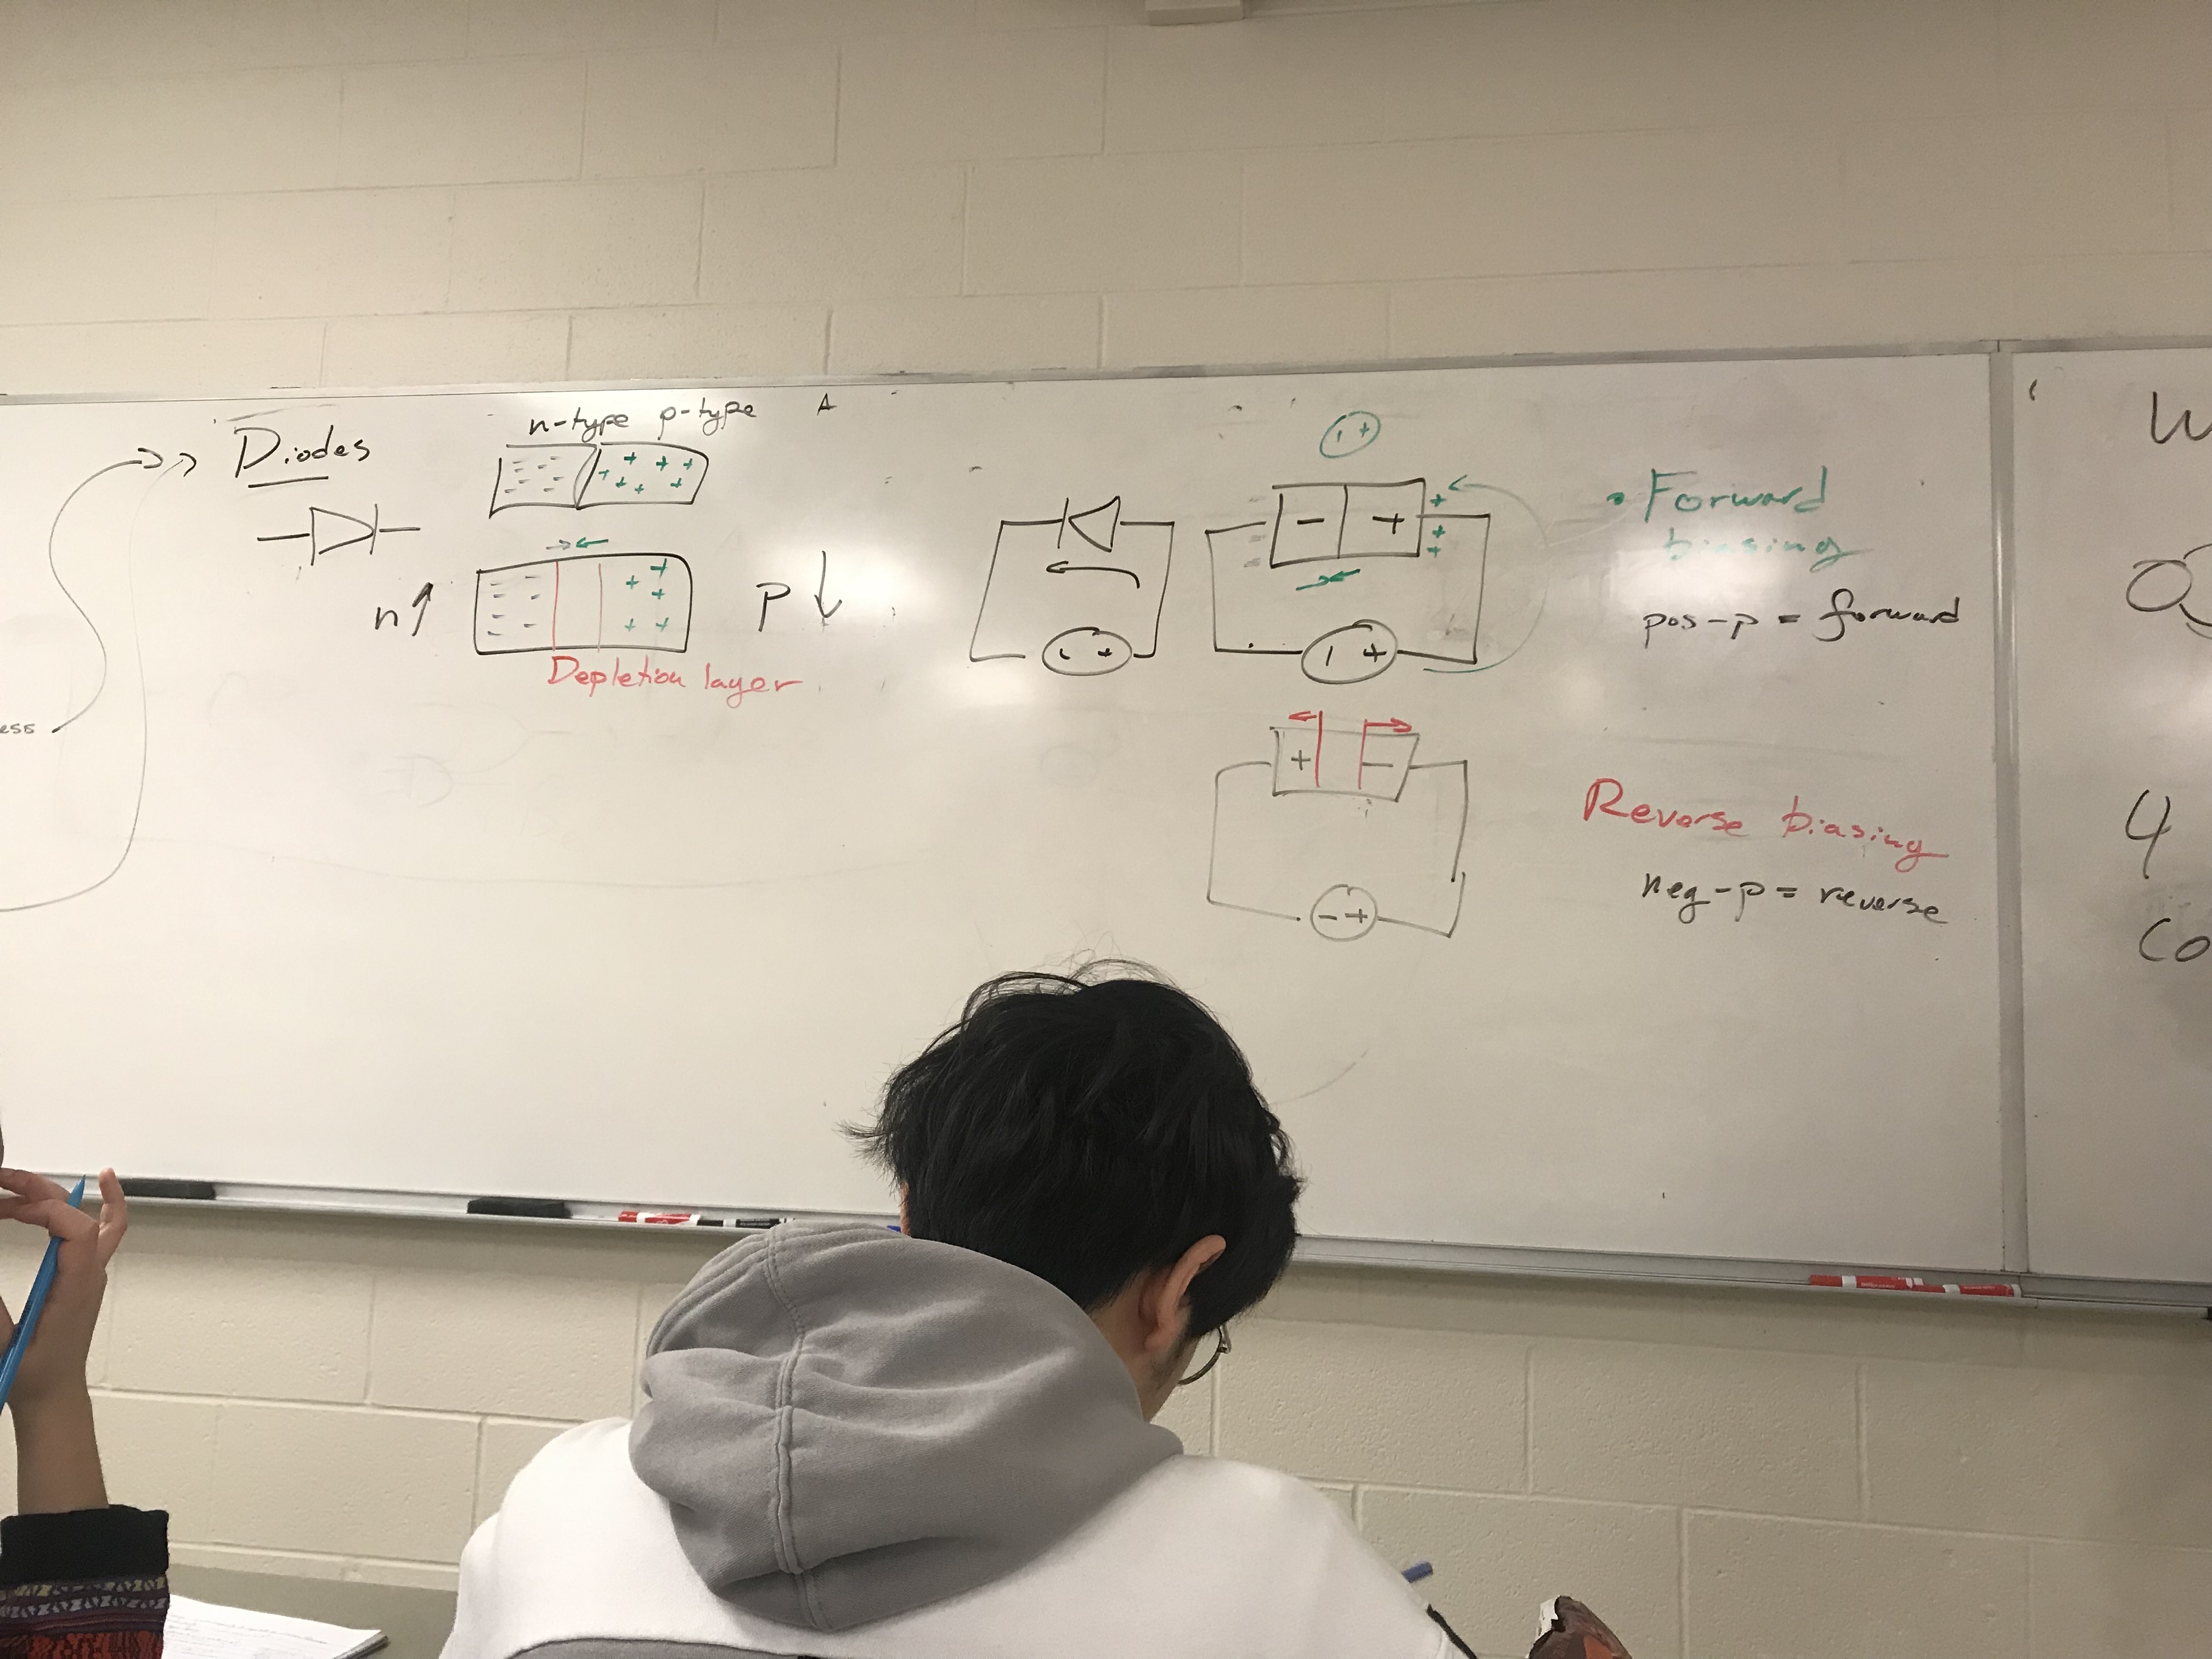 Diodes
n-type p-type
n↑
p↓
Depletion layer
Forward
biasing
pos-p = forward
Reverse biasing
neg-p = reverse
ess
W
4
Co